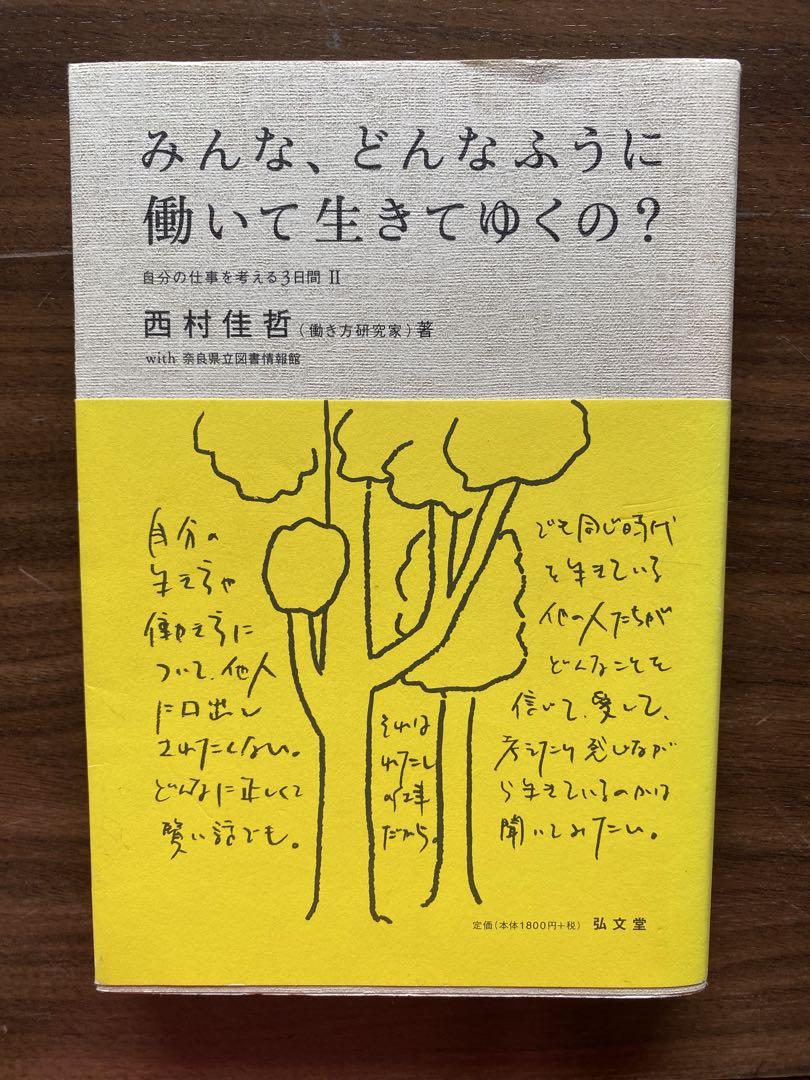 みんな、どんなふうに
働いて生きてゆくの？
自分の仕事を考える3日間 II
西村佳哲（働き方研究家）著
with 奈良県立図書情報館
自分の
生き方や
働き方に
ついて、他人
に口出し
されたくない。
どんなに正しくて
賢い話でも。
それは
わたし
の仕事
だから。
でも同じ時代
を生きている
他の人たちが
どんなことを
信じて、愛して、
考えたり感じなが
ら生きているのかは
聞いてみたい。
定価（本体1800円+税） 弘文堂